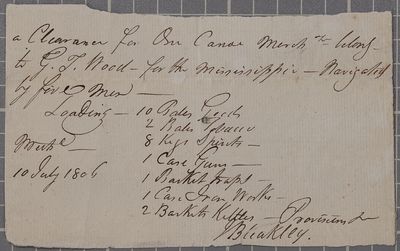 a Clearance for One Canoe Merchze belong-
to G. T. Wood - for the Mississippi - Navigated
by five Men -
Loading - 10 Bales Goods
2 Bales Tobacco
8 Kegs Spirits -
1 Case Guns -
1 Basket Traps -
1 Case Iron Works -
2 Baskets Kettles - Provisions &
10 July 1806